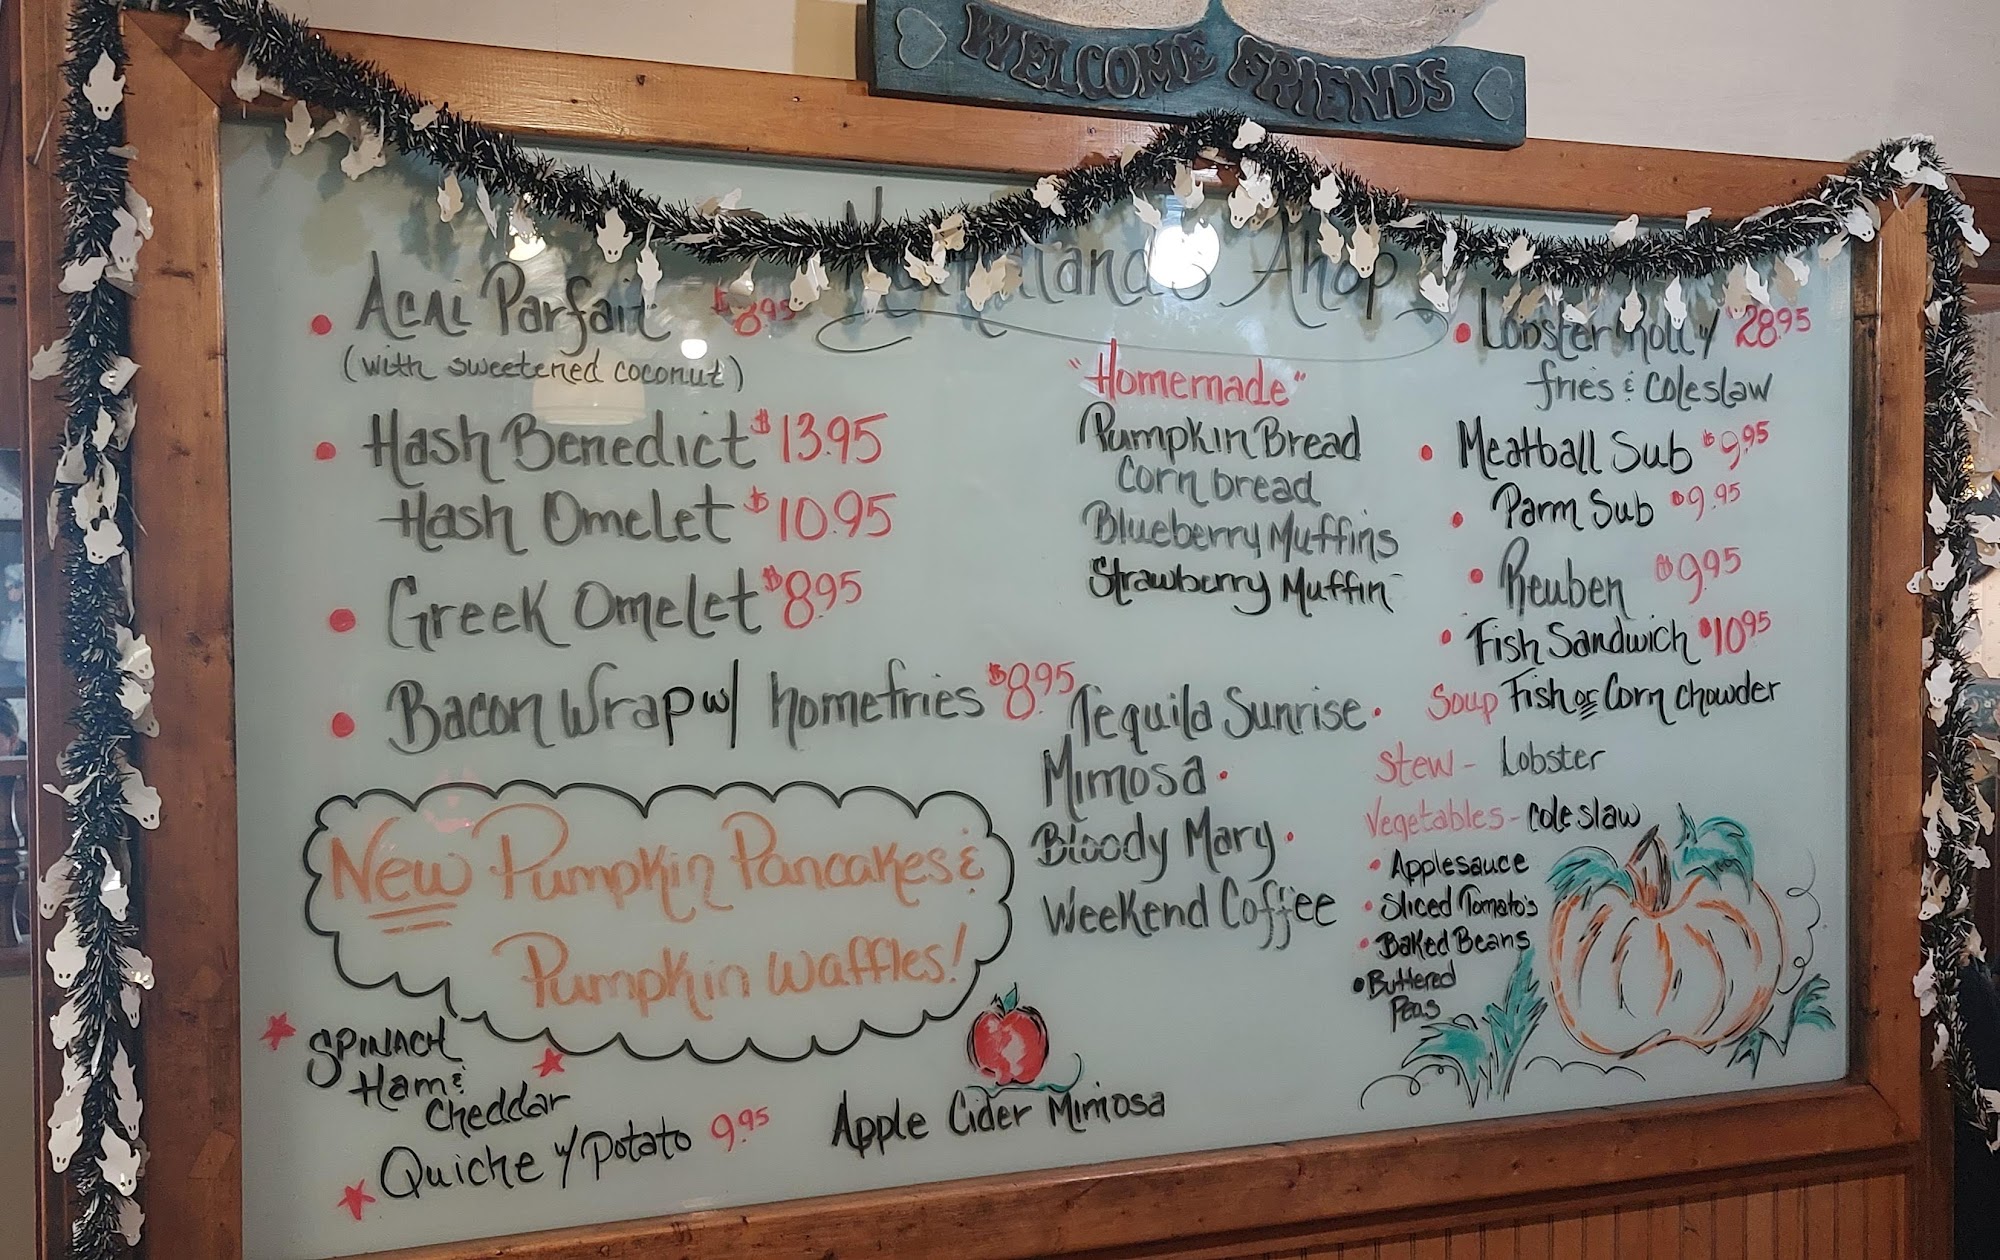 WELCOME FRIENDS
Ahop
Acai Parfait $8.95
(with sweetened coconut)
Hash Benedict $13.95
Hash Omelet $10.95
Greek Omelet $8.95
Bacon Wrap w/ homefries $8.95
New Pumpkin Pancakes &
Pumpkin Waffles!
SPINACH
Ham &
Cheddar
Quiche w/ potato 9.95
"Homemade"
Pumpkin Bread
Corn bread
Blueberry Muffins
Strawberry Muffin
Tequila Sunrise
Mimosa
Bloody Mary
Weekend Coffee
Apple Cider Mimosa
Lobster Roll w/ $28.95
fries & Coleslaw
Meatball Sub $9.95
Parm Sub $9.95
Reuben $9.95
Fish Sandwich $10.95
Soup Fish or Corn Chowder
Stew - Lobster
Vegetables - Coleslaw
Applesauce
Sliced Tomato's
Baked Beans
Buttered
Peas